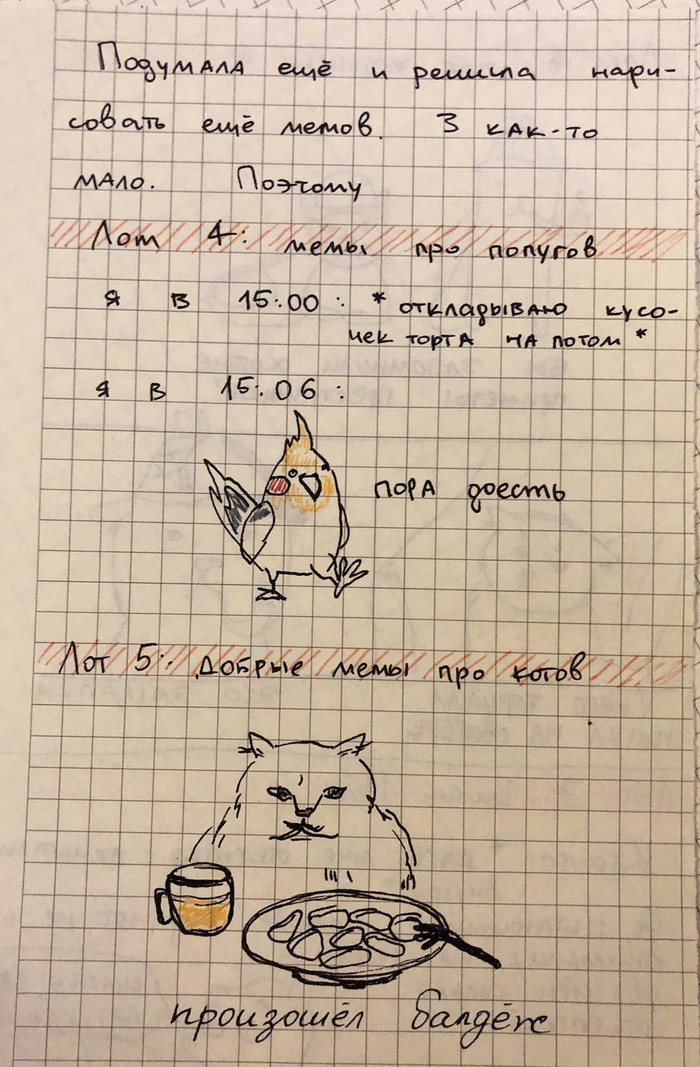 Подумала ещё и решила нари-
совать ещё мемов. 3 как-то
мало. Поэтому
Лот 4: мемы про попугов
я в 15:00 : * откладываю кусо-
чек торта на потом *
я в 15:06 :
пора доесть
Лот 5: Добрые мемы про котов
произошёл балдёж